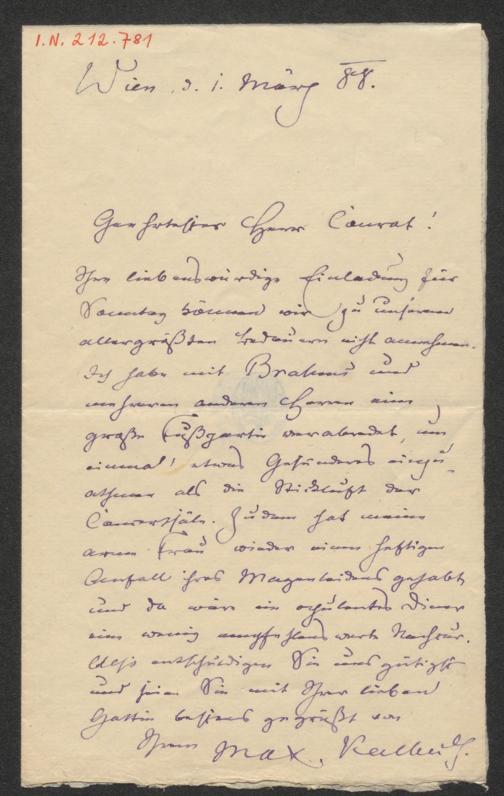 I.N. 212.781
Wien, d. 1. März 88.
Geehrtester Herr Conrat!
Ihre liebenswürdige Einladung für
Sonntag können wir zu unserem
allergrößten Bedauern nicht annehmen.
Ich habe mit Brahms und
mehreren anderen Herren eine
große Fußpartie verabredet, um
einmal etwas Gesünderes einzu-
athmen als die Stickluft der
Concertsäle. Zudem hat meine
arme Frau wieder einen heftigen
Anfall ihres Magenleidens gehabt
und da wäre ein opulentes Diner
eine wenig empfehlenswerte Nachcur.
Also entschuldigen Sie uns gütigst
und seien Sie mit Ihrer lieben
Gattin bestens gegrüßt von
Ihrem Max Kalbeck.